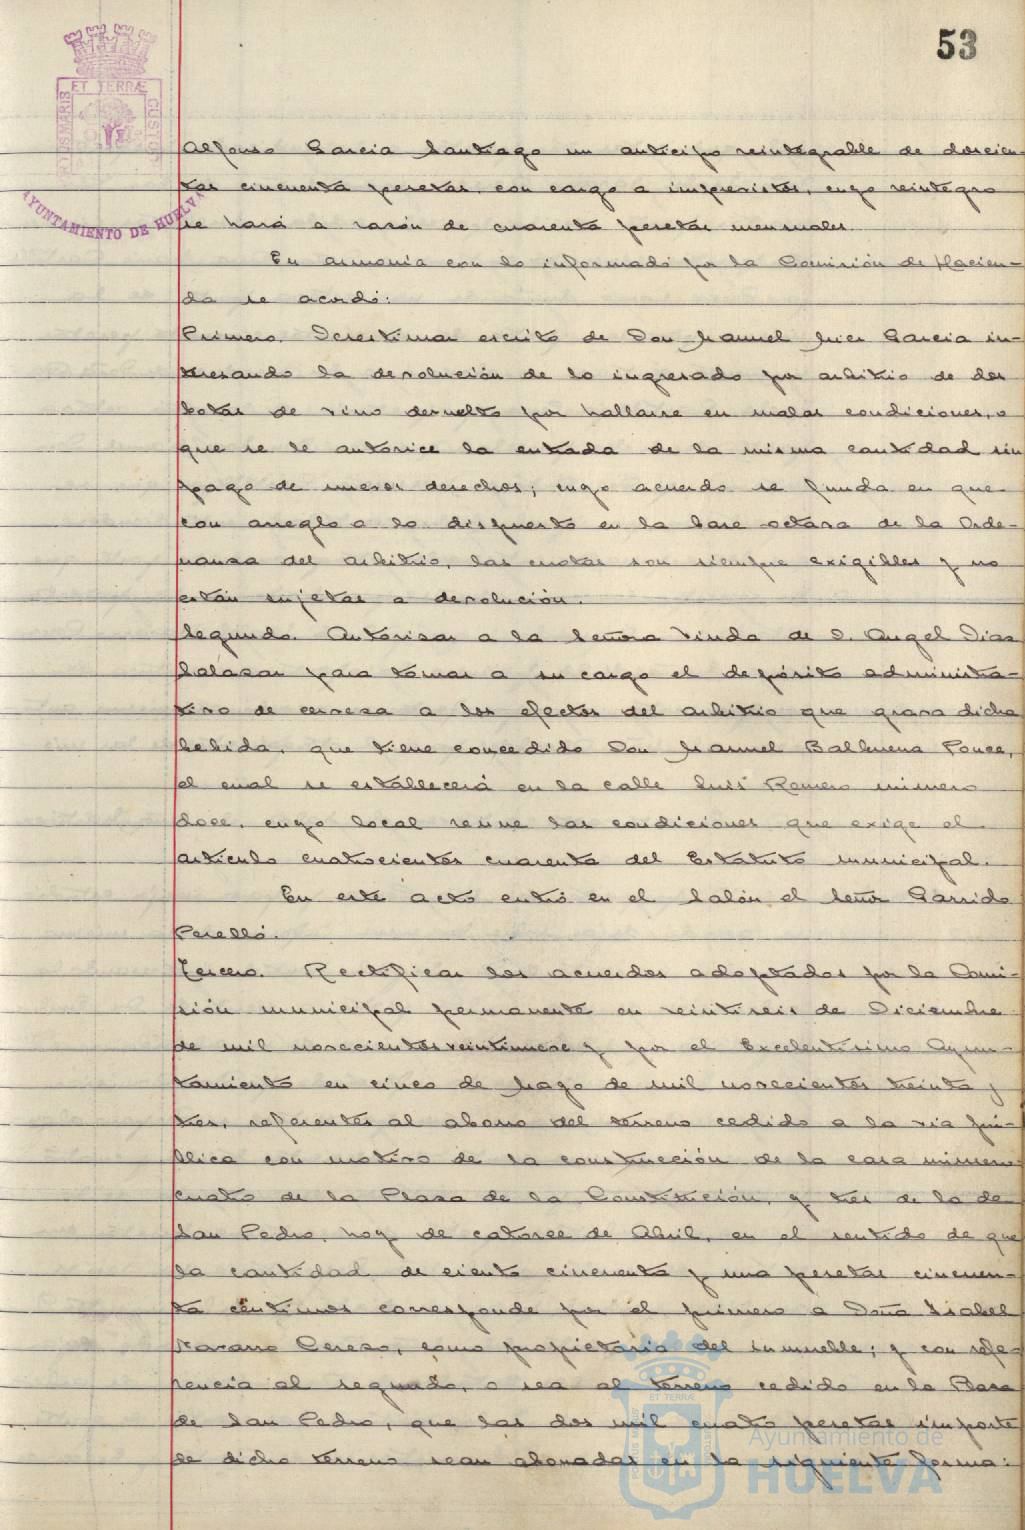 53
ET TERRÆ
AYUNTAMIENTO DE HUELVA
Alfonso Garcia Santiago un anticipo reintegrable de doscien-
tas cincuenta pesetas, con cargo a imprevistos, cuyo reintegro
se hará a razón de cuarenta pesetas mensuales.
En armonia con lo informado por la Comisión de Hacien-
da se acordó:
Primero. Desestimar escrito de Don Manuel Mier Garcia in-
teresando la devolución de lo ingresado por arbitrio de dos
botas de vino devuelto por hallarse en malas condiciones, o
que se le autorice la entrada de la misma cantidad sin
pago de nuevos derechos; cuyo acuerdo se funda en que
con arreglo a lo dispuesto en la base octava de la Orde-
nanza del arbitrio, las cuotas son siempre exigibles y no
están sujetas a devolución.
Segundo. Autorizar a la Señora Viuda de D. Angel Diaz
Salazar para tomar a su cargo el depósito administra-
tivo de cerveza a los efectos del arbitrio que grava dicha
bebida, que tiene concedido Don Manuel Balbuena Ponce,
el cual se establecerá en la calle Luis Romero número
doce, cuyo local reune las condiciones que exige el
articulo cuatrocientos cuarenta del Estatuto municipal.
En este acto entró en el Salón el Señor Garrido
Perelló.
Tercero. Rectificar los acuerdos adoptados por la Comi-
sión municipal permanente en veintiseis de Diciembre
de mil novecientos veintinueve y por el Excelentisimo Ayun-
tamiento en cinco de Mayo de mil novecientos treinta y
tres, referentes al abono del terreno cedido a la via pú-
blica con motivo de la construcción de la casa número
cuatro de la Plaza de la Constitución, y tres de la de
San Pedro, hoy de catorce de Abril, en el sentido de que
la cantidad de ciento cincuenta y una pesetas cincuen-
ta céntimos corresponde por el primero a Doña Isabel
Navarro Cerezo, como propietaria del inmueble; y con refe-
rencia al segundo, o sea al terreno cedido en la Plaza
de San Pedro, que las dos mil cuatro pesetas importe
de dicho terreno sean abonadas en la siguiente forma:
Ayuntamiento de
HUELVA